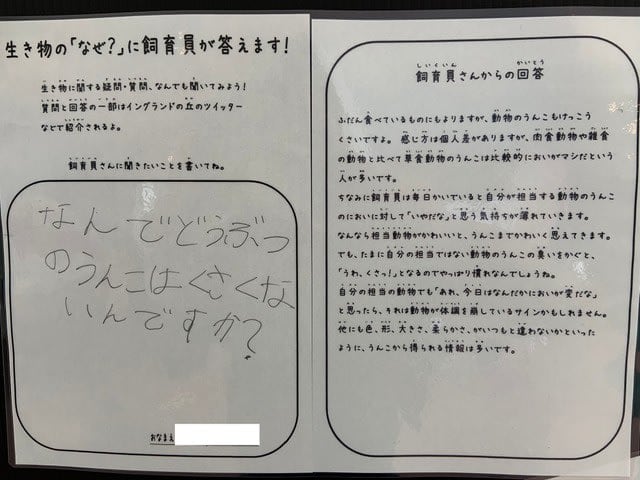 生き物の「なぜ?」に飼育員が答えます!
生き物に関する疑問・質問、なんでも聞いてみよう!
質問と回答の一部はイングランドの丘のツイッター
などで紹介されるよ。
飼育員さんに聞きたいことを書いてね。
なんでどうぶつ
のうんこはくさくな
いんですか?
おなまえ
しいくいん かいとう
飼育員さんからの回答
ふだん食べているものにもよりますが、動物のうんこもけっこう
くさいですよ。感じ方は個人差がありますが、肉食動物や雑食
の動物と比べて草食動物のうんこは比較的においがマシだという
人が多いです。
ちなみに飼育員は毎日かいでいると自分が担当する動物のうんこ
のにおいに対して「いやだな」と思う気持ちが薄れていきます。
なんなら担当動物がかわいいと、うんこまでかわいく思えてきます。
でも、たまに自分の担当ではない動物のうんこの臭いをかぐと、
「うわ、くさっ!」となるのでやっぱり慣れなんでしょうね。
自分の担当の動物でも「あれ、今日はなんだかにおいが変だな」
と思ったら、それは動物が体調を崩しているサインかもしれません。
他にも色、形、大きさ、柔らかさ、がいつもと違わないかといった
ように、うんこから得られる情報は多いです。